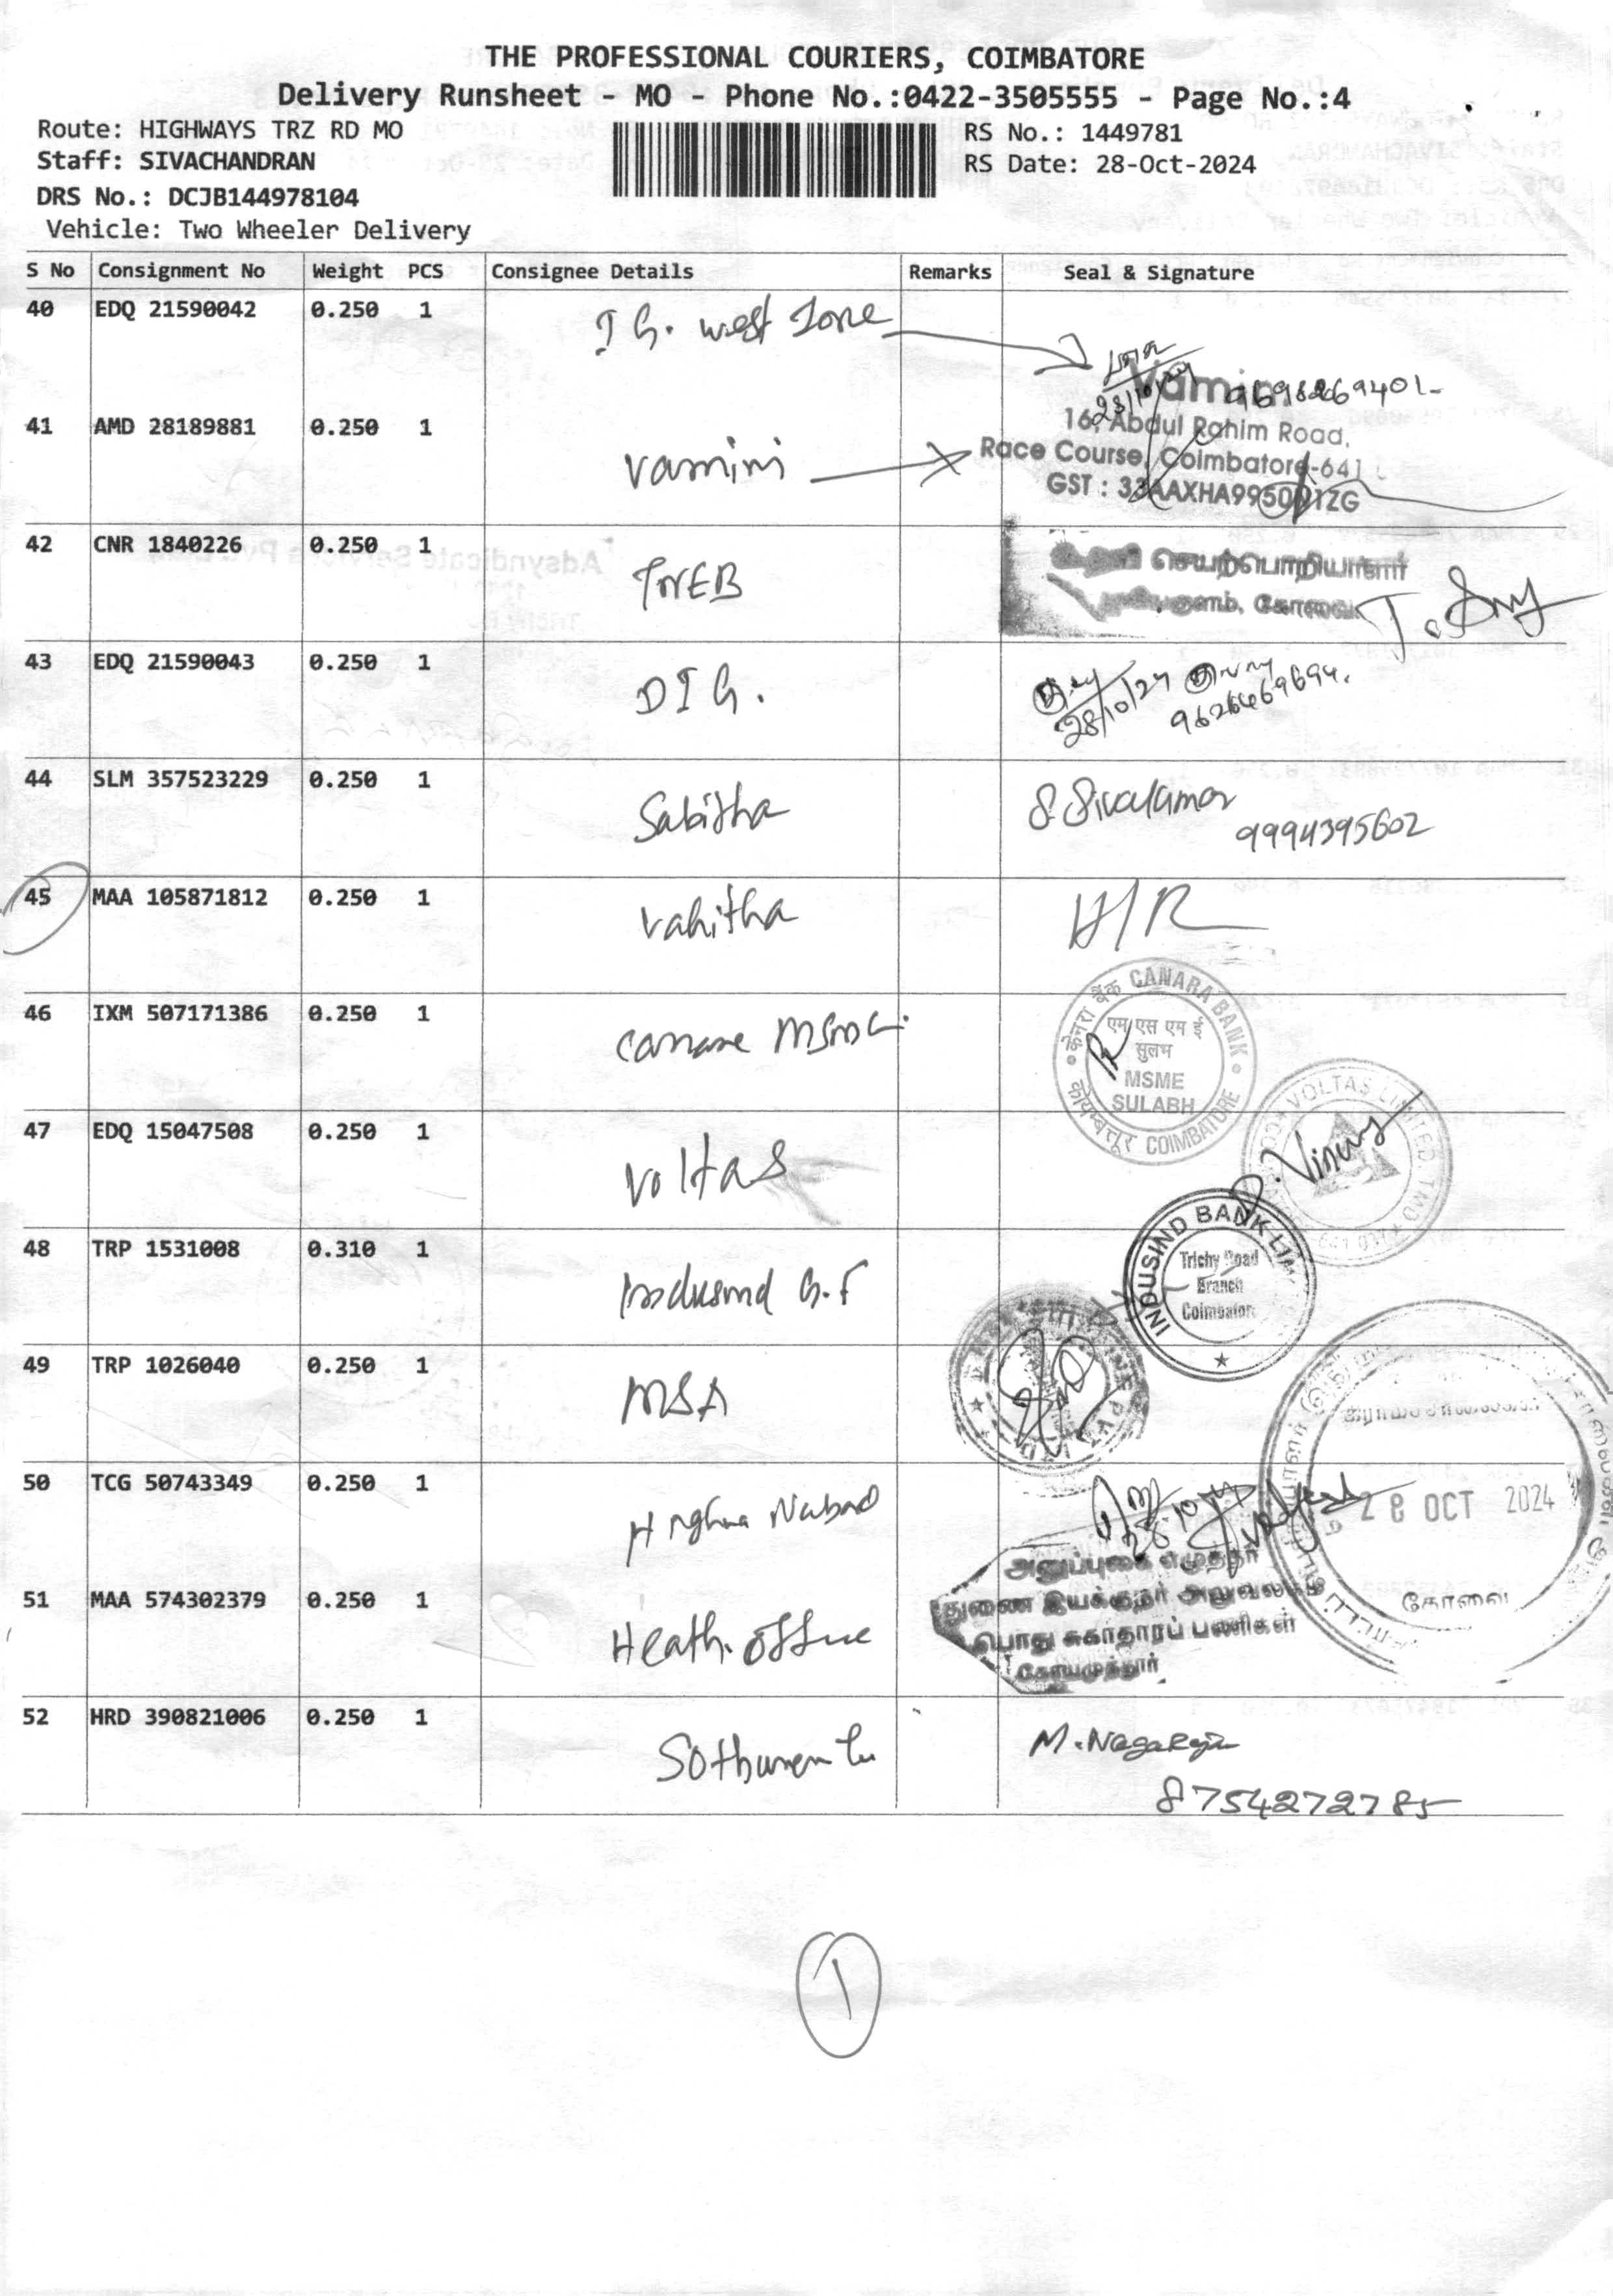 THE PROFESSIONAL COURIERS, COIMBATORE
Delivery Runsheet - MO - Phone No.:0422-3505555 - Page No.:4
Route: HIGHWAYS TRZ RD MO
RS No.: 1449781
Staff: SIVACHANDRAN
RS Date: 28-Oct-2024
DRS No.: DCJB144978104
Vehicle: Two Wheeler Delivery
S No Consignment No Weight PCS Consignee Details Remarks Seal & Signature
40 EDQ 21590042 0.250 1 I G. west Zone
28/10/24
Vamini
16, Abdul Rahim Road,
41 AMD 28189881 0.250 1 vamini
Race Course, Coimbatore-641
GST :
42 CNR 1840226 0.250 1 TNEB
செயற்பொறியாளர்
43 EDQ 21590043 0.250 1 D I G.
28/10/24
9626469694.
44 SLM 357523229 0.250 1 Sabitha
S. Sivakumar
9994395602
45 MAA 105871812 0.250 1 vahitha
46 IXM 507171386 0.250 1 MSME
केनरा बैंक CANARA BANK
एम एस एम ई
सुलभ
MSME
SULABH
कोयम्बत्तूर COIMBATORE
47 EDQ 15047508 0.250 1 Voltas
VOLTAS LIMITED
48 TRP 1531008 0.310 1 Indusind G.F
INDUSIND BANK
Trichy Road
Branch
Coimbatore
49 TRP 1026040 0.250 1 MSA
50 TCG 50743349 0.250 1
28 OCT 2024
கோவை
51 MAA 574302379 0.250 1 Heath. office
துணை இயக்குநர்
பொது சுகாதாரப் பணிகள்
கோயமுத்தூர்
52 HRD 390821006 0.250 1
M. Nagaraju
8754272785
1